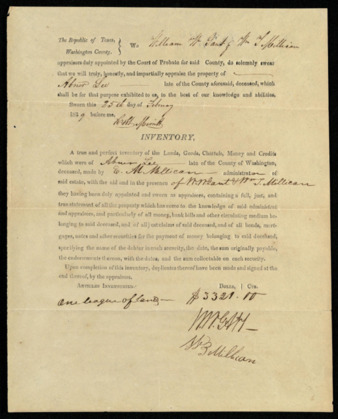 The Republic of Texas,
Washington County.
We William W. & Wm. T. Millican
appraisers duly appointed by the Court of Probate for said County, do solemnly swear
that we will truly, honestly, and impartially appraise the property of
Abner Lee late of the County aforesaid, deceased, which
shall be for that purpose exhibited to us, to the best of our knowledge and abilities.
Sworn this 25th day of February
183 before me,
INVENTORY.
A true and perfect inventory of the Lands, Goods, Chattels, Money and Credits
which were of Abner Lee late of the County of Washington,
deceased, made by E. M. Millican administrator of
said estate, with the aid and in the presence of & Wm T. Millican
they having been duly appointed and sworn as appraisers, containing a full, just, and
true statement of all the property which has come to the knowledge of said administrator
and appraisers, and particularly of all money, bank bills and other circulating medium be-
longing to said deceased, and of all just claims of said deceased, and of all bonds, mort-
gages, notes and other securities for the payment of money belonging to said deceased;
specifying the name of the debtor in each security, the date, the sum originally payable,
the endorsements thereon, with the dates, and the sum collectable on each security.
Upon completion of this inventory, duplicates thereof have been made and signed at the
end thereof, by the appraisers.
Articles Inventoried. Dolls. Cts.
one league of land $ 3321.10
Millican